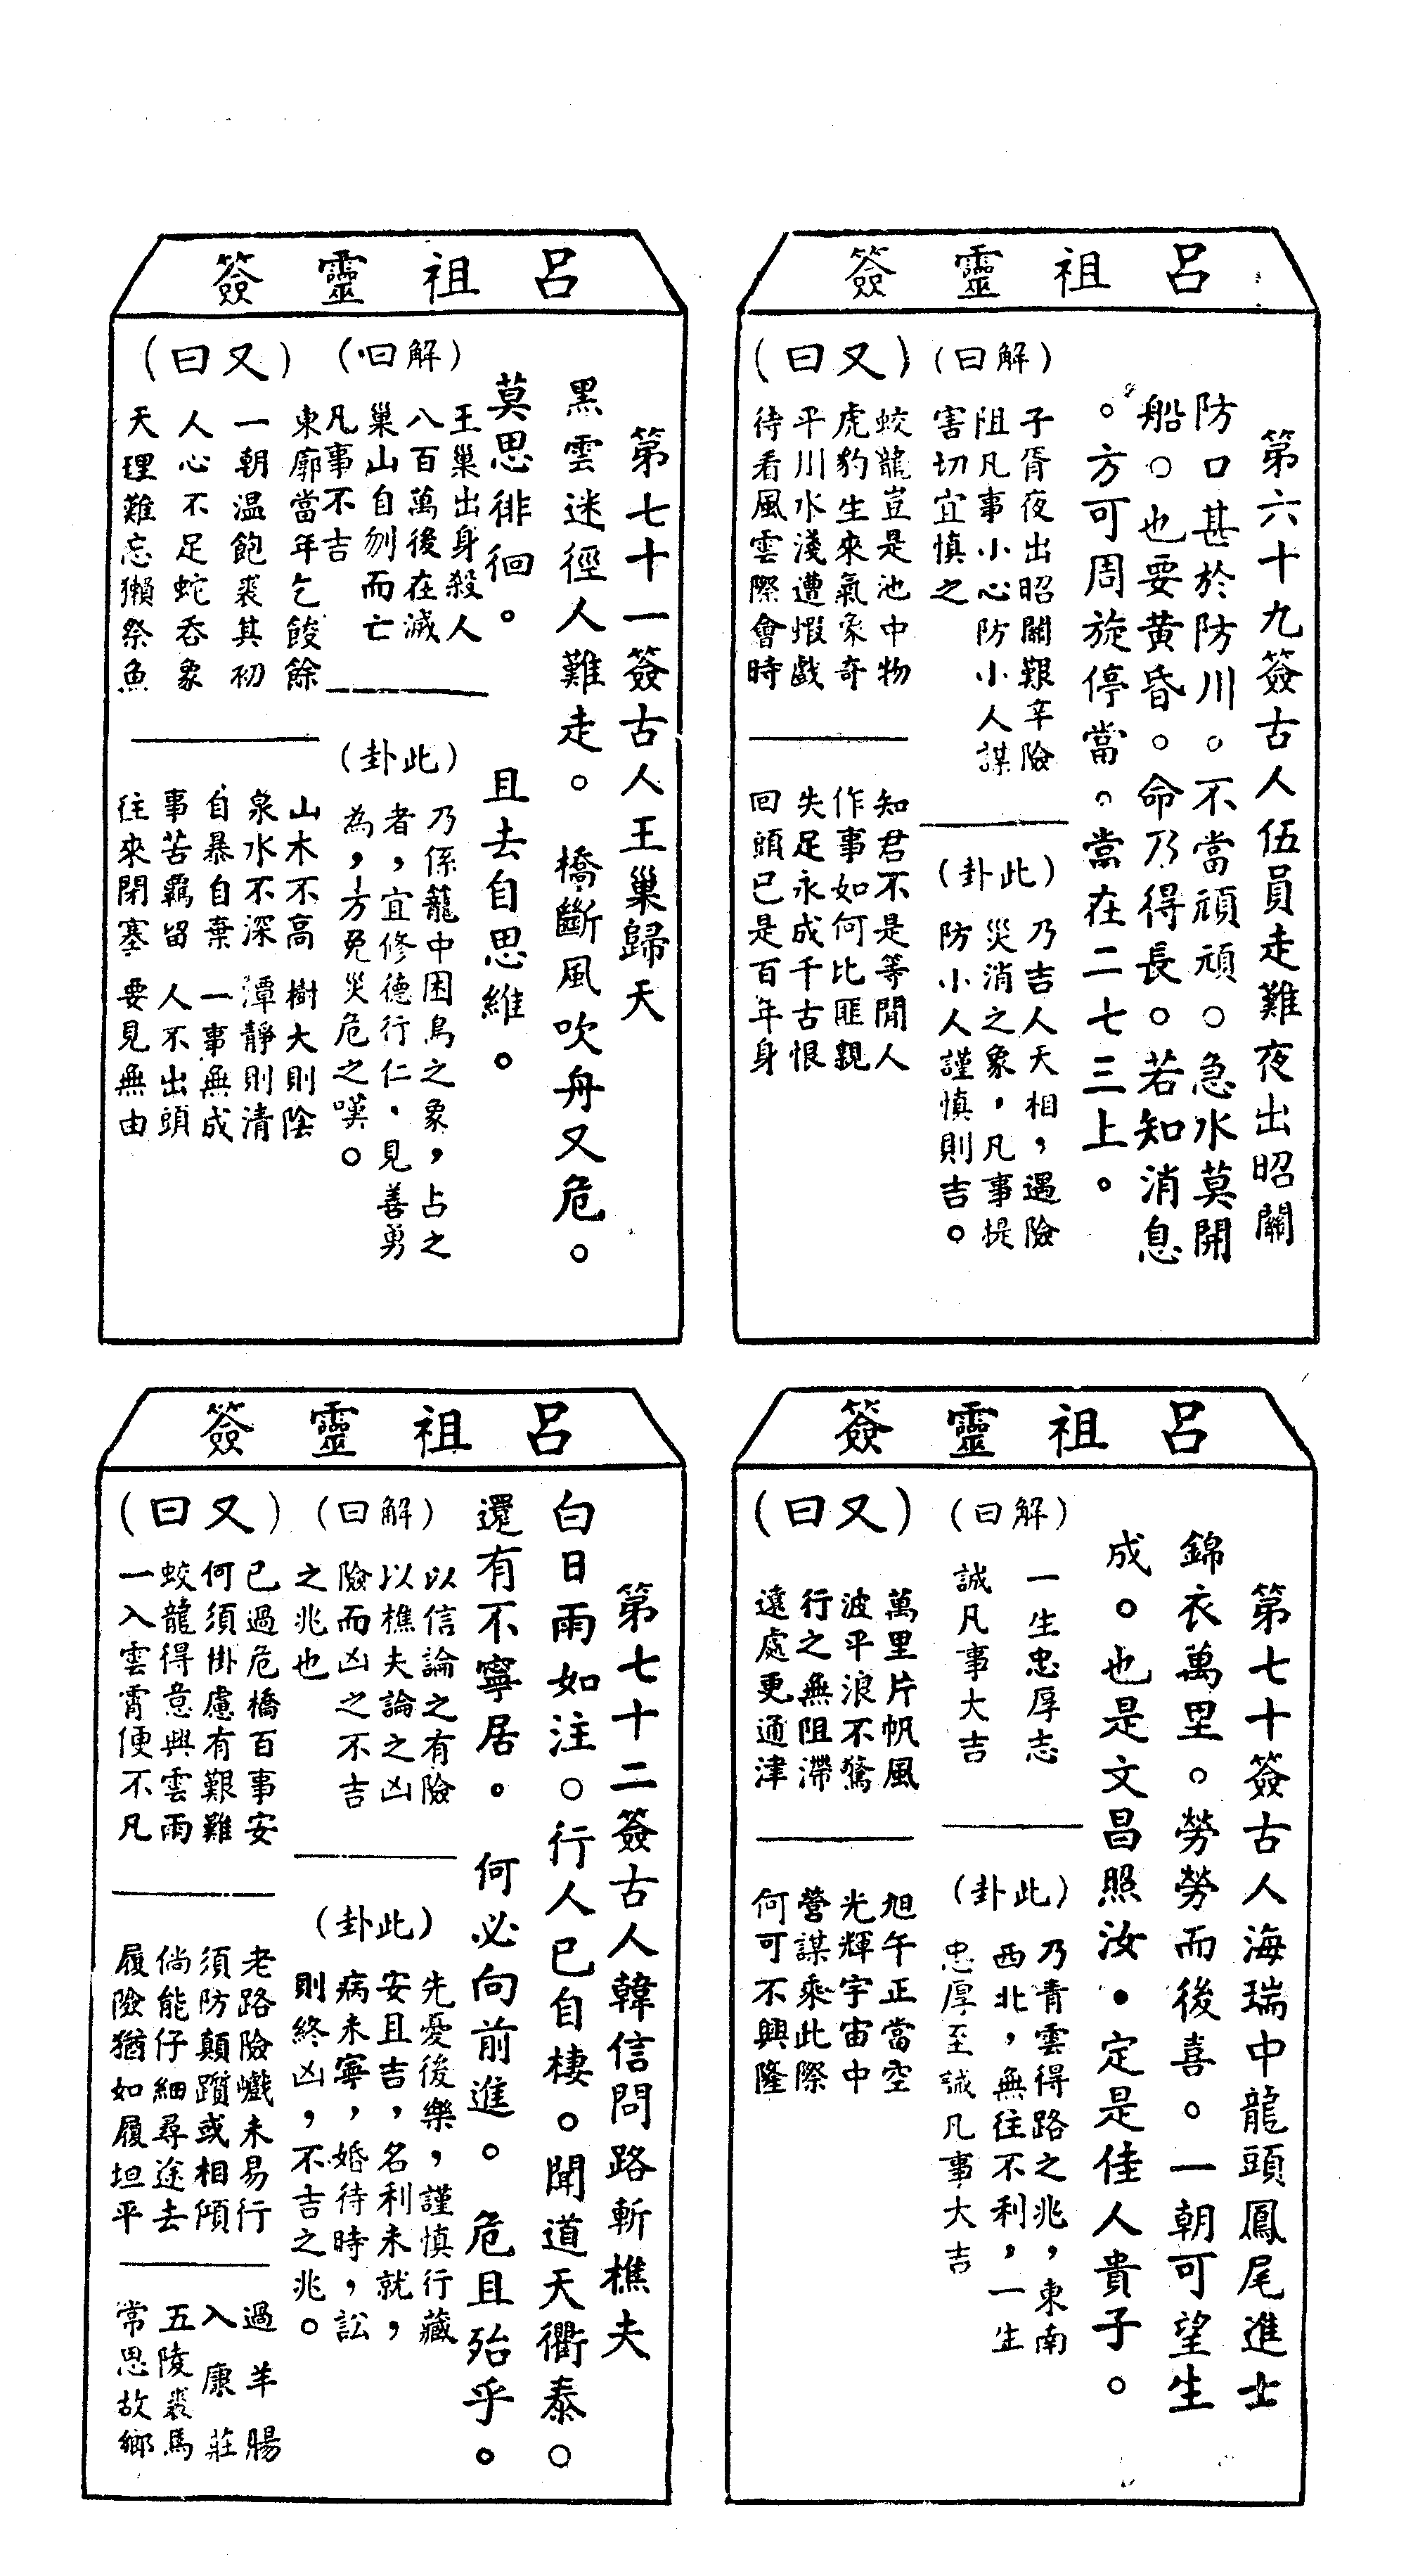 呂祖靈簽
第六十九簽古人伍員走難夜出昭關
防口甚於防川。不當頑頑。急水莫開
船。也要黃昏。命乃得長。若知消息
。方可周旋停當。當在二七三上。
(解曰)
子胥夜出昭關艱辛險
阻凡事小心防小人謀
害切宜慎之
(此卦)
乃吉人天相,遇險
災消之象,凡事提
防小人謹慎則吉。
(又曰)
蛟龍豈是池中物
虎豹生來氣象奇
平川水淺遭蝦戲
待看風雲際會時
知君不是等閒人
作事如何比匪親
失足永成千古恨
回頭已是百年身
呂祖靈簽
第七十簽古人海瑞中龍頭鳳尾進士
錦衣萬里。勞勞而後喜。一朝可望生
成。也是文昌照汝。定是佳人貴子。
(解曰)
一生忠厚志
誠凡事大吉
(此卦)
乃青雲得路之兆,東南
西北,無往不利,一生
忠厚至誠凡事大吉
(又曰)
萬里片帆風
波平浪不驚
行之無阻滯
遠處更通津
旭午正當空
光輝宇宙中
營謀乘此際
何可不興隆
呂祖靈簽
第七十一簽古人王巢歸天
黑雲迷徑人難走。橋斷風吹舟又危。
莫思徘徊。且去自思維。
(解曰)
王巢出身殺人
八百萬後在滅
巢山自刎而亡
凡事不吉
(此卦)
乃係籠中困鳥之象,占之
者,宜修德行仁、見善勇
為,方免災危之嘆。
(又曰)
東廓當年乞餕餘
一朝温飽裘其初
人心不足蛇吞象
天理難忘獺祭魚
山木不高 樹大則陰
泉水不深 潭靜則清
自暴自棄 一事無成
事苦羈留 人不出頭
往來閉塞 要見無由
呂祖靈簽
第七十二簽古人韓信問路斬樵夫
白日雨如注。行人已自棲。聞道天衢泰。
還有不寧居。何必向前進。危且殆乎。
(解曰)
以信論之有險
以樵夫論之凶
險而凶之不吉
之兆也
(此卦)
先憂後樂,謹慎行藏
安且吉,名利未就,
病未寧,婚待時,訟
則終凶,不吉之兆。
(又曰)
已過危橋百事安
何須掛慮有艱難
蛟龍得意興雲雨
一入雲霄便不凡
老路險巇未易行
須防顛躓或相傾
倘能仔細尋途去
履險猶如履坦平
過羊腸
入康莊
五陵裘馬
常思故鄉